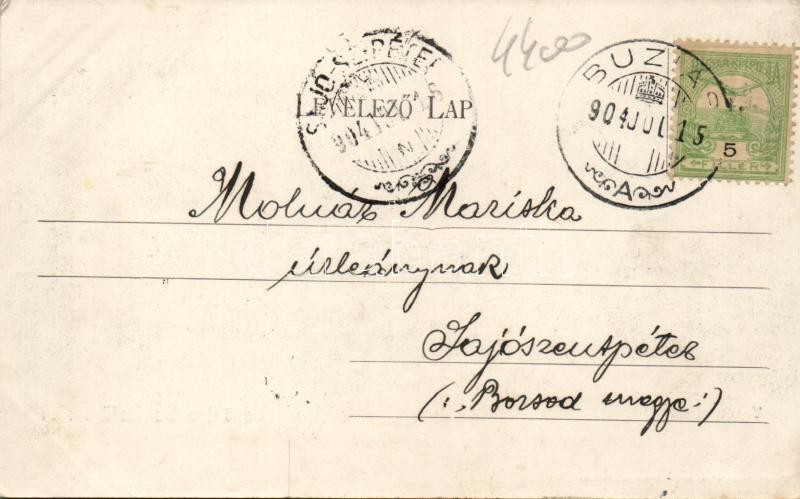 4400
SAJÓ-SZ.-PÉTER
904
N
LEVELEZŐ LAP
BUZIÁS
904 JUL 15
A
MAGYAR KIR. POSTA
5
FILLÉR
Molnár Mariska
úrleánynak
Sajószentpéter
(:Borsod megye:)